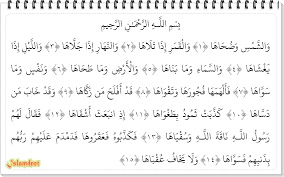 بِسْمِ اللَّهِ الرَّحْمَٰنِ الرَّحِيمِ
وَالشَّمْسِ وَضُحَاهَا ﴿١﴾ وَالْقَمَرِ إِذَا تَلَاهَا ﴿٢﴾ وَالنَّهَارِ إِذَا جَلَّاهَا ﴿٣﴾ وَاللَّيْلِ إِذَا
يَغْشَاهَا ﴿٤﴾ وَالسَّمَاءِ وَمَا بَنَاهَا ﴿٥﴾ وَالْأَرْضِ وَمَا طَحَاهَا ﴿٦﴾ وَنَفْسٍ وَمَا
سَوَّاهَا ﴿٧﴾ فَأَلْهَمَهَا فُجُورَهَا وَتَقْوَاهَا ﴿٨﴾ قَدْ أَفْلَحَ مَن زَكَّاهَا ﴿٩﴾ وَقَدْ خَابَ مَن
دَسَّاهَا ﴿١٠﴾ كَذَّبَتْ ثَمُودُ بِطَغْوَاهَا ﴿١١﴾ إِذِ انبَعَثَ أَشْقَاهَا ﴿١٢﴾ فَقَالَ لَهُمْ
رَسُولُ اللَّهِ نَاقَةَ اللَّهِ وَسُقْيَاهَا ﴿١٣﴾ فَكَذَّبُوهُ فَعَقَرُوهَا فَدَمْدَمَ عَلَيْهِمْ رَبُّهُم
بِذَنبِهِمْ فَسَوَّاهَا ﴿١٤﴾ وَلَا يَخَافُ عُقْبَاهَا ﴿١٥﴾